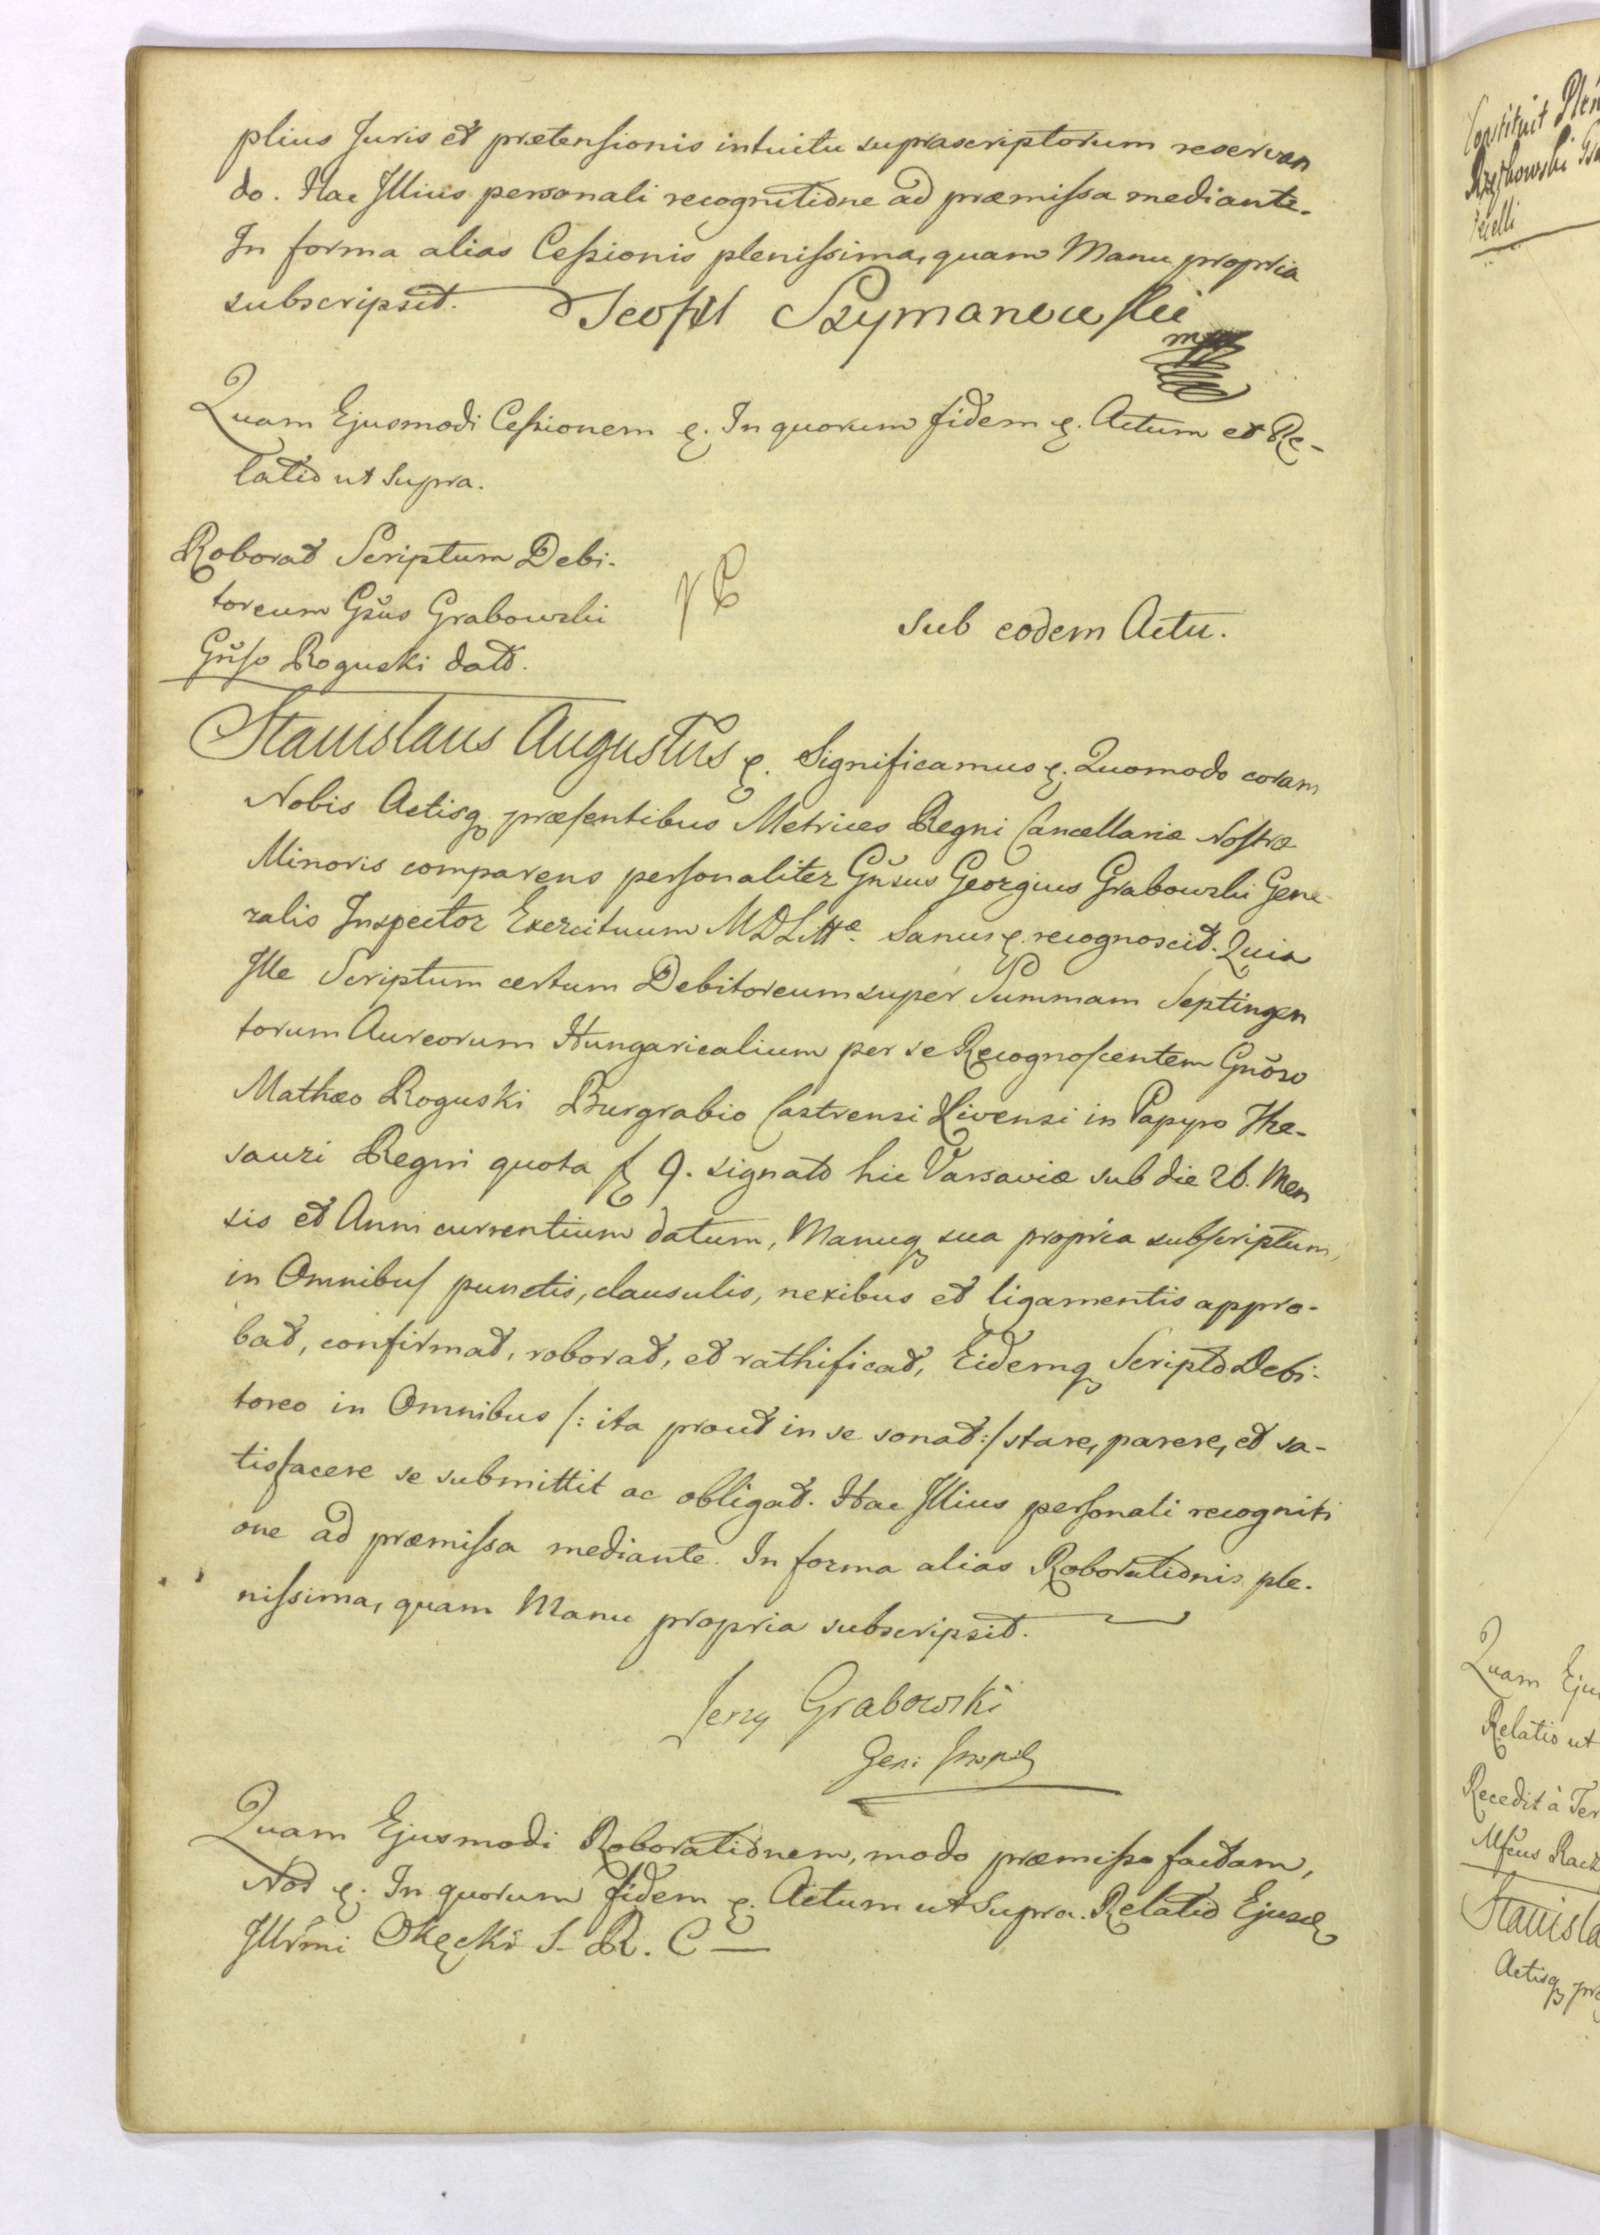 plius Juris et prætensionis intuitu suprascriptorum reservan
do. Hac Illius personali recognitione ad præmissa mediante.
In forma alias Cessionis plenissima, quam Manu propria
subscripsit. Teofil Szymanowski
mp
Quam Ejusmodi Cessionem &. In quorum fidem &. Actum et Re-
latio ut supra.
Roborat Scriptum Debi-
toreum Gsus Grabowski
Gnso Roguski dato.
Sub eodem Actu.
Stanislaus Augustus &. Significamus &. Quomodo coram
Nobis Actisq præsentibus Metrices Regni Cancellariæ Nostræ
Minoris comparens personaliter Gnsus Georgius Grabowski Gene-
ralis Inspector Exercituum MDLttæ. Sanus &. recognoscit. Quia
Ille Scriptum certum Debitoreum super Summam Septingen
torum Aureorum Hungaricalium per se Recognoscentem Gnoso
Mathæo Roguski Burgrabio Castrensi Livensi in Papyro The-
sauri Regni quota f 9. signato hic Varsaviæ sub die 26. Men
sis et Anni currentium datum, Manuq sua propria subscriptum,
in Omnibus punctis, clausulis, nexibus et ligamentis appro-
bat, confirmat, roborat, et rathificat, Eidemq Scripto Debi-
toreo in Omnibus /: ita prout in se sonat :/ stare, parere, et sa-
tisfacere se submittit ac obligat. Hac Illius personali recogniti
one ad præmissa mediante. In forma alias Roborationis ple-
nissima, quam Manu propria subscripsit.
Jerzy Grabowski
Gen:
Quam Ejusmodi Roborationem, modo præmisso factam,
Nos &. In quorum fidem &. Actum ut supra. Relatio Ejusd
Illrmi Okęcki S. R. C
Constituit
Quam Eju
Relatio ut
Recedit à Ter
Stanisla
Actisq præ